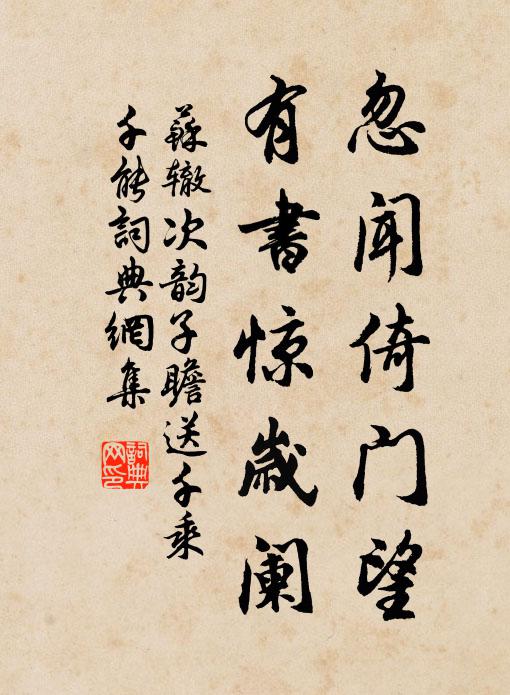 忽闻倚门望
有书惊歲阑
蘇辙次韵子瞻送千乘
千能詞典網集
詞典网印